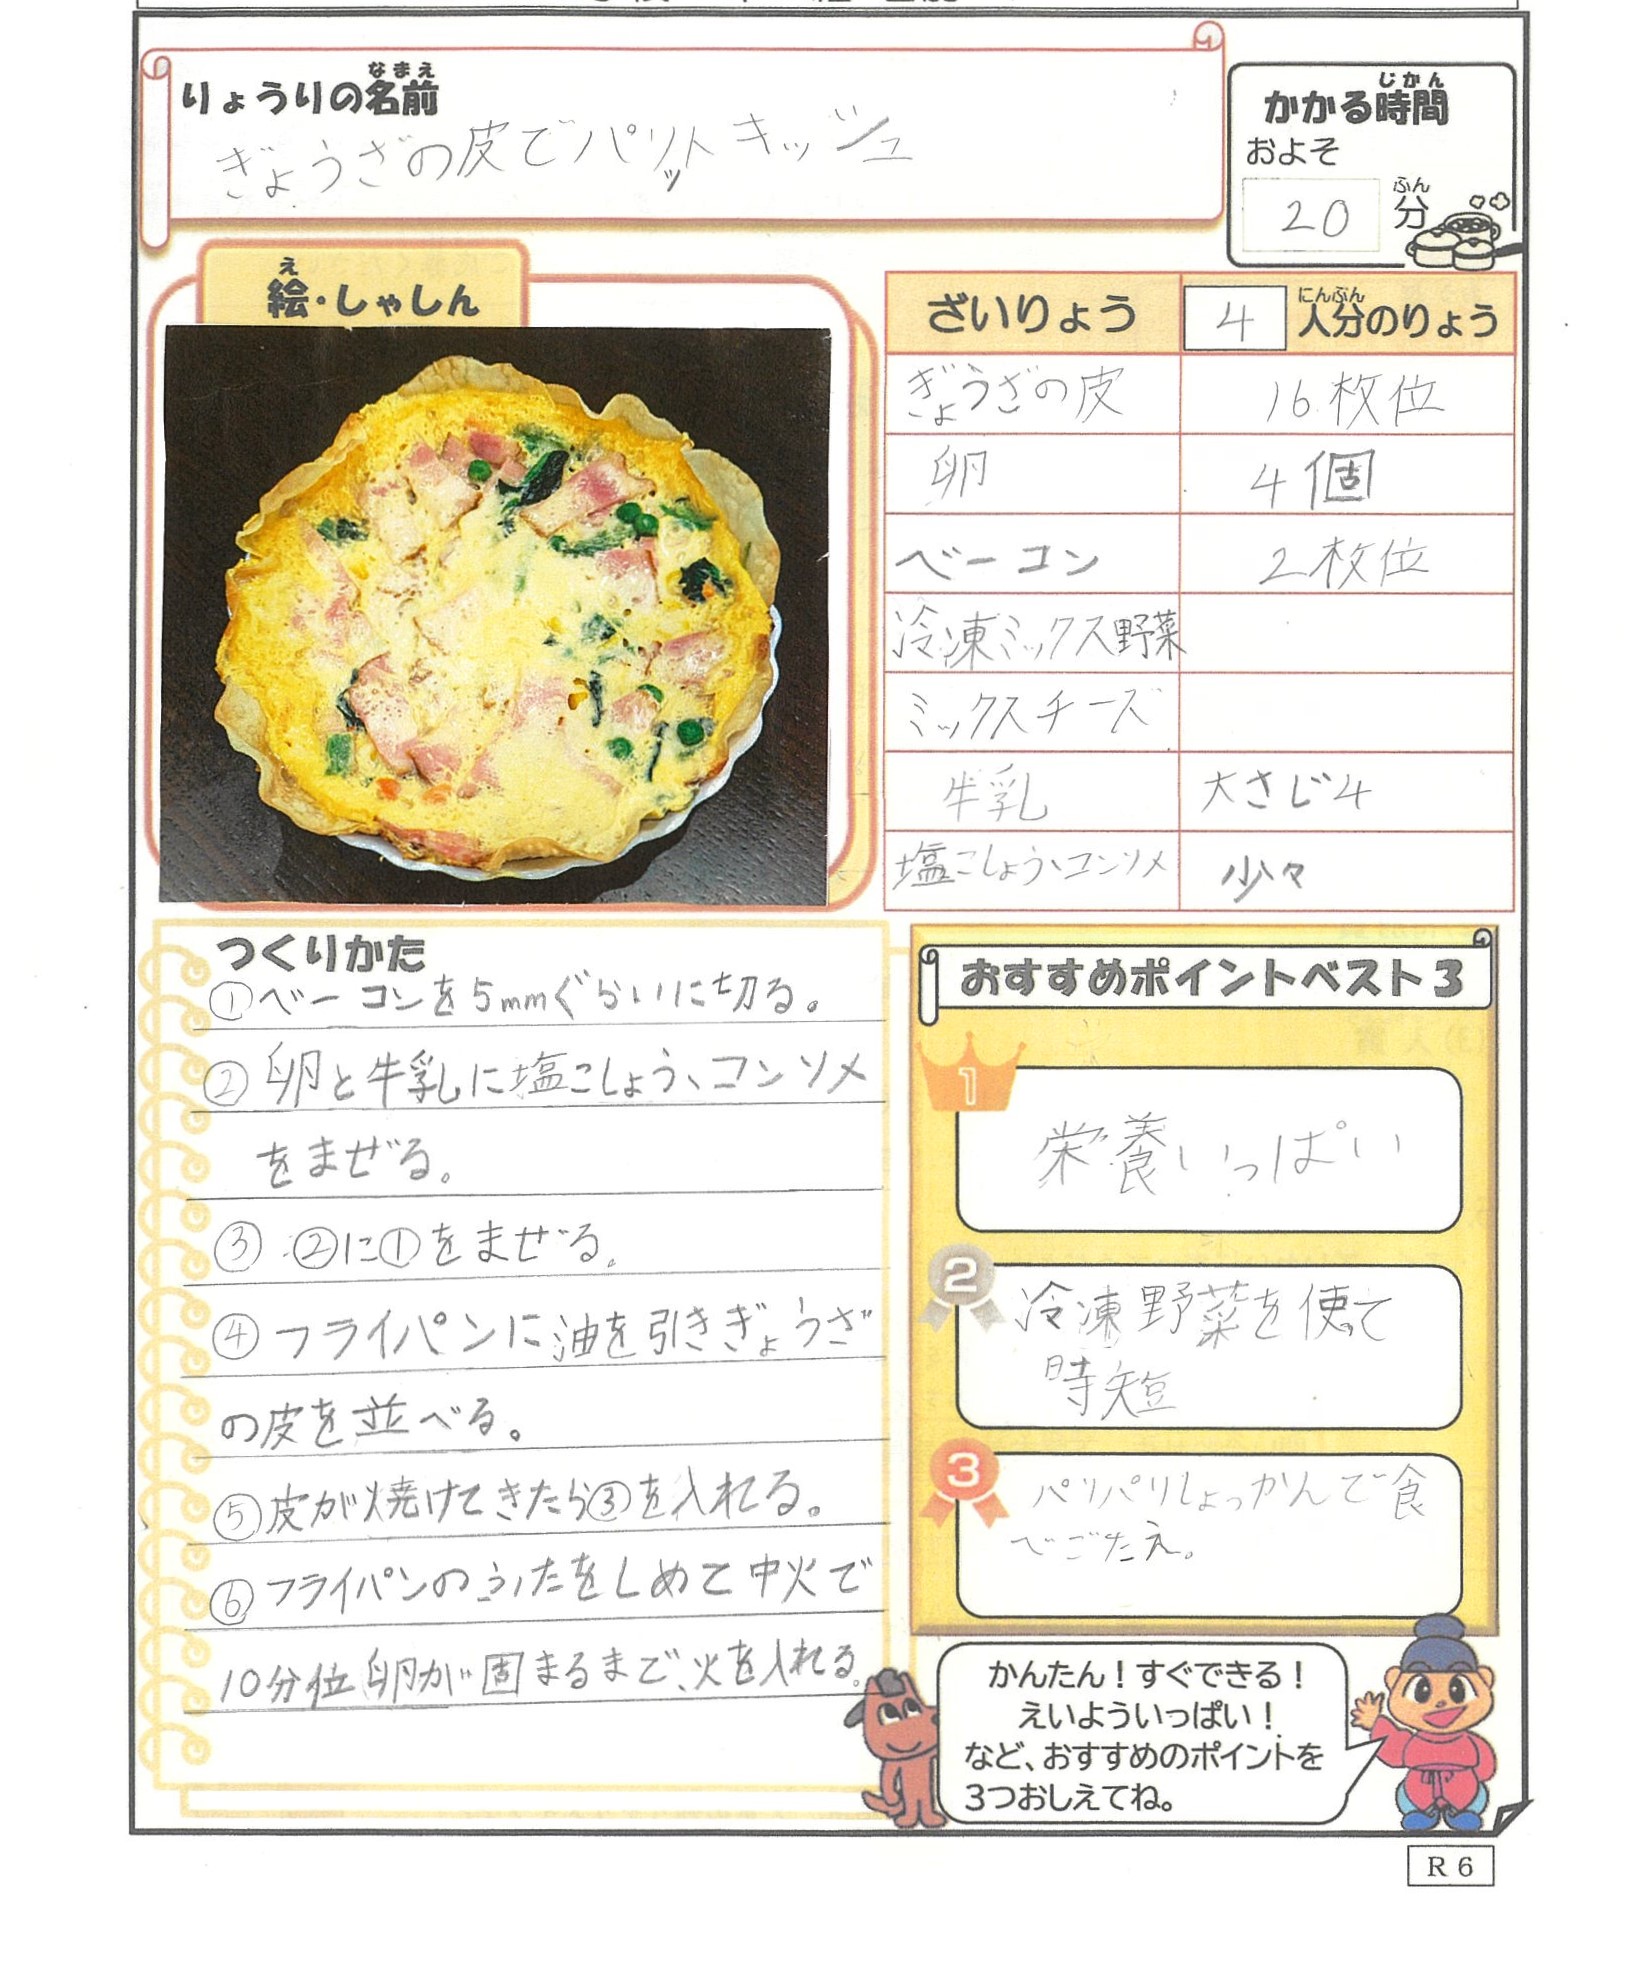 りょうりの名前
なまえ
ぎょうざの皮でパリッとキッシュ
かかる時間
じかん
およそ
20 分
ふん
絵・しゃしん
え
ざいりょう 4 人分のりょう
にんぶん
ぎょうざの皮 16枚位
卵 4個
ベーコン 2枚位
冷凍ミックス野菜
ミックスチーズ
牛乳 大さじ4
塩こしょう、コンソメ 少々
つくりかた
①ベーコンを5mmぐらいに切る。
②卵と牛乳に塩こしょう、コンソメ
をまぜる。
③ ②に①をまぜる。
④フライパンに油を引きぎょうざ
の皮を並べる。
⑤皮が焼けてきたら③を入れる。
⑥フライパンのふたをしめて中火で
10分位卵が固まるまで、火を入れる。
おすすめポイントベスト3
1
栄養いっぱい
2
冷凍野菜を使って
時短
3
パリパリしょっかんで食
べごたえ。
かんたん！すぐできる！
えいよういっぱい！
など、おすすめのポイントを
3つおしえてね。
R6